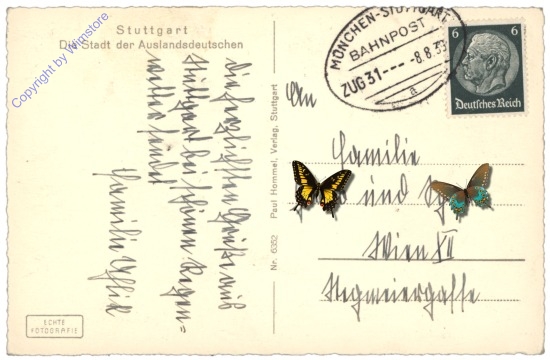 Stuttgart
Die Stadt der Auslandsdeutschen
Copyright by Wimstore
die herzlichsten Grüße aus
Stuttgart bei schönem Regen=
wetter sendet
Familie
ECHTE
FOTOGRAFIE
Nr. 6352 Paul Hommel, Verlag, Stuttgart
MÜNCHEN-STUTTGART
BAHNPOST
ZUG 31 --- -8.8.39
a
6 6
Deutsches Reich
An
Familie
und
Wien XII